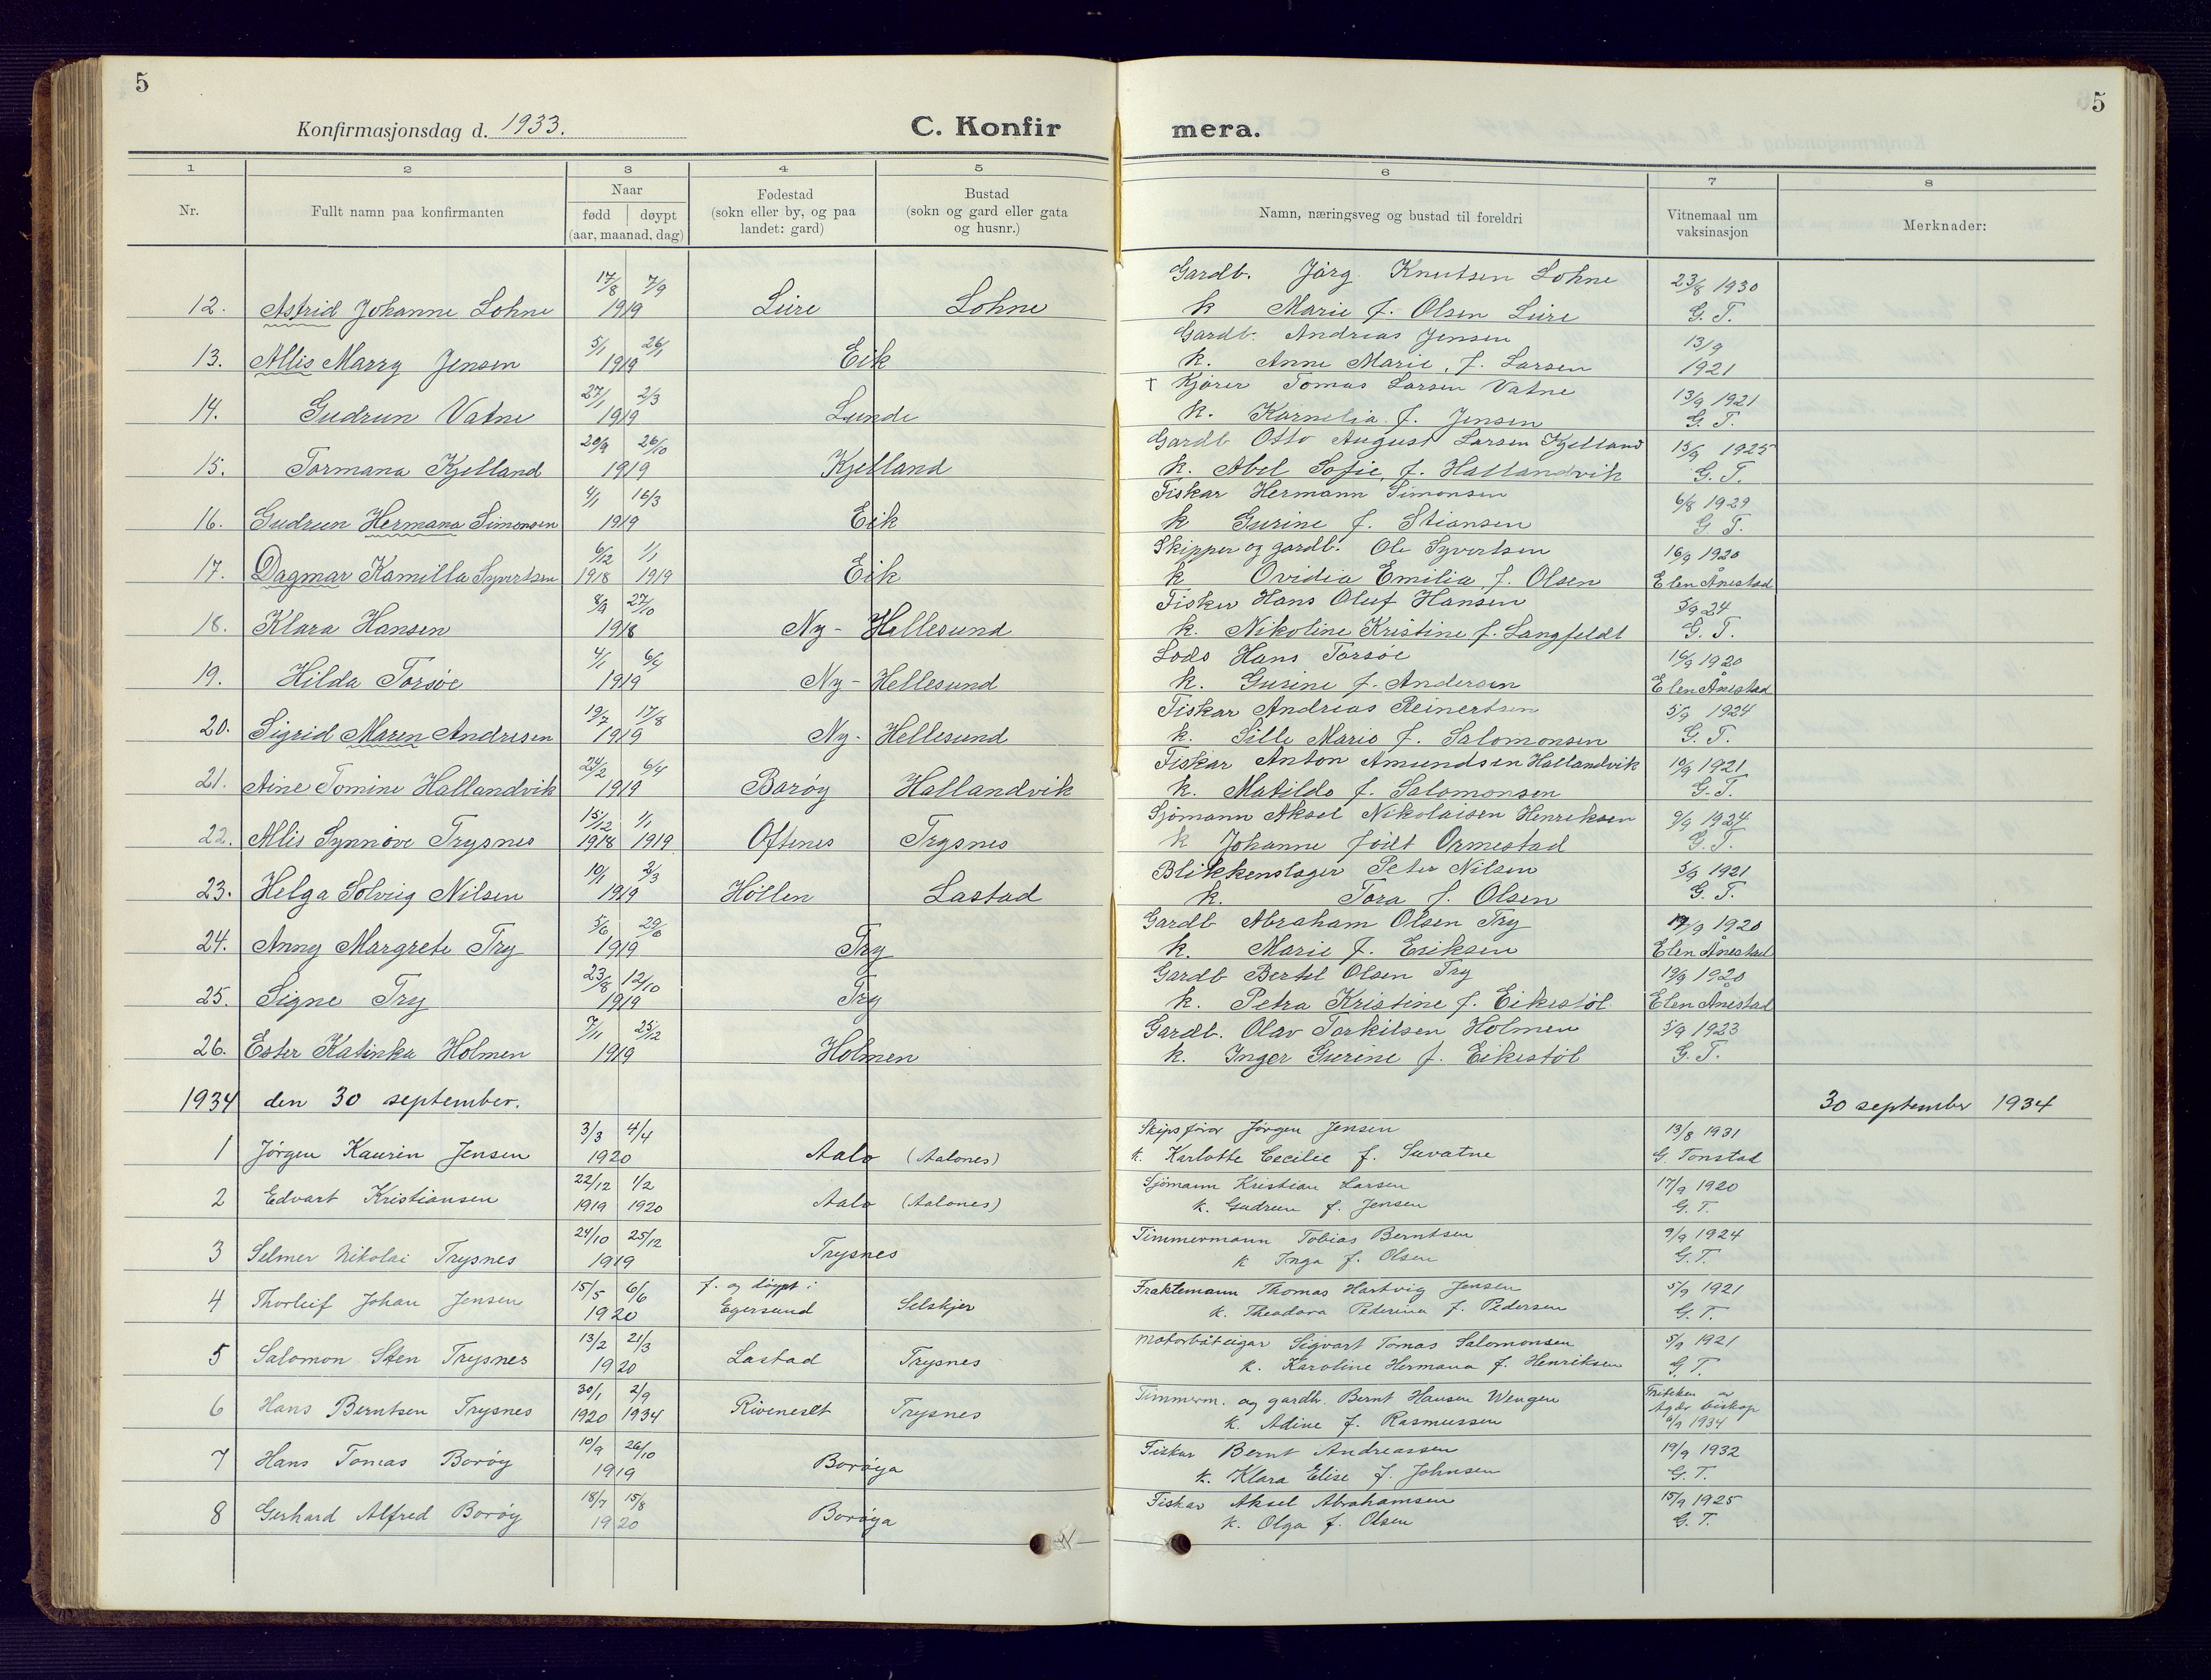 5
Konfirmasjonsdag d. 1933.
C. Konfir
mera.
5
1 2 3 4 5 6 7 8
Nr.
Fullt namn paa konfirmanten
Naar
født | døypt
(aar, maanad, dag)
Fødestad
(sokn eller by, og paa
landet: gard)
Bustad
(sokn og gard eller gata
og husnr.)
Namn, næringsveg og bustad til foreldri
Vitnemaal um
vaksinasjon
Merknader:
17/8 7/9 Gardb. Jørg. Knutsen Lohne 23/8 1930
12. Astrid Johanne Lohne 1919 Lire Lohne k Marie f. Olsen Lire G. T.
5/1 26/1 Gardb. Andreas Jensen 13/9
13. Allis Marry Jensen 1919 Eik k. Anne Marie, f. Larsen 1921
27/1 2/3 † Kjører Tomas Larsen Vatne 13/9 1921
14. Gudrun Vatne 1919 Lunde k. Kornelia f. Jensen G. T.
20/9 26/10 Gardb Otto August Larsen Kjelland 15/9 1925
15. Tormana Kjelland 1919 Kjelland k. Abel Sofie, f. Hallandvik G. T.
4/1 16/3 Fiskar Hermann Simonsen 6/8 1929
16. Gudrun Hermana Simonsen 1919 Eik k Gurine f. Stiansen G T.
6/12 1/1 Skipper og gardb. Ole Syvertsen 16/9 1920
17. Dagmar Kamilla Syvertsen 1918 1919 Eik k Ovidia Emilia, f. Olsen Elen Ånestad
8/9 27/10 Fisker Hans Oluf Hansen 5/9 24
18. Klara Hansen 1918 Ny-Hellesund k. Nikoline Kristine f. Langfeldt G. T.
4/1 6/4 Lods Hans Torsøe 16/9 1920
19. Hilda Torsøe 1919 Ny-Hellesund k. Gurine f. Andersen Elen Ånestad
19/7 17/8 Fiskar Andreas Reinertsen 5/9 1924
20. Sigrid Maren Andresen 1919 Ny-Hellesund k. Sille Marie f. Salomonsen G. T.
24/2 6/4 Fiskar Anton Amundsen Hallandvik 10/9 1921
21. Aine Tomine Hallandvik 1919 Borøy Hallandvik k. Matilde f. Salomonsen G. T.
15/12 1/1 Sjømann Aksel Nikolaisen Henriksen 9/9 1924
22. Allis Synnøve Trysnes 1918 1919 Oftenes Trysnes k Johanne født Ormestad G. T.
10/1 2/3 Blikkenslager Peter Nilsen 5/9 1921
23. Helga Solveig Nilsen 1919 Høllen Lastad k. Tora f. Olsen G. T.
5/6 29/6 Gardb Abraham Olsen Try 19/9 1920
24. Anny Margrete Try 1919 Try k. Marie f. Eriksen Elen Ånestad
23/8 12/10 Gardb Bertel Olsen Try 19/9 1920
25. Signe Try 1919 Try k. Petra Kristine f. Eikestøl Elen Ånestad
7/11 25/12 Gardb. Olav Torkilsen Holmen 5/9 1923
26. Ester Katinka Holmen 1919 Holmen k. Inger Gurine f. Eikestøl G. T.
1934 den 30 september. 30 september 1934
3/3 4/4 Skipsfører Jørgen Jensen 13/8 1931
1 Jørgen Kaurin Jensen 1920 Aalo (Aalones) k. Karlotte Cecilie f. Suvatne G. Tonstad
22/12 1/2 Sjømann Kristian Larsen 17/9 1920
2 Edvart Kristiansen 1919 1920 Aalo (Aalones) k. Gudrun f. Jensen G. T.
24/10 25/12 Timmermann Tobias Berntsen 9/9 1924
3 Selmer Nikolai Trysnes 1919 Trysnes k Inga f. Olsen G. T.
15/5 6/6 f. og døypt i Fraktemann Thomas Hartvig Jensen 5/9 1921
4 Thorleif Johan Jensen 1920 Egersund Selskjer k. Theodora Pederina f. Pedersen G. T.
13/2 21/3 Motorbåteigar Sigvart Tomas Salomonsen 5/9 1921
5 Salomon Sten Trysnes 1920 Lastad Trysnes k. Karoline Hermana f. Henriksen G. T.
30/1 2/9 Timmerm. og gardb. Bernt Hansen Wengen Friteken av
6 Hans Berntsen Trysnes 1920 1934 Riveneset Trysnes k. Adine f. Rasmussen Agder biskop
6/9 1934
10/9 26/10 Fiskar Bernt Andreassen 19/9 1932
7 Hans Tomas Borøy 1919 Borøya k. Klara Elise f. Johnsen G. T.
18/7 15/8 Fiskar Aksel Abrahamsen 15/9 1925
8 Gerhard Alfred Borøy 1920 Borøya k. Olga f. Olsen G. T.